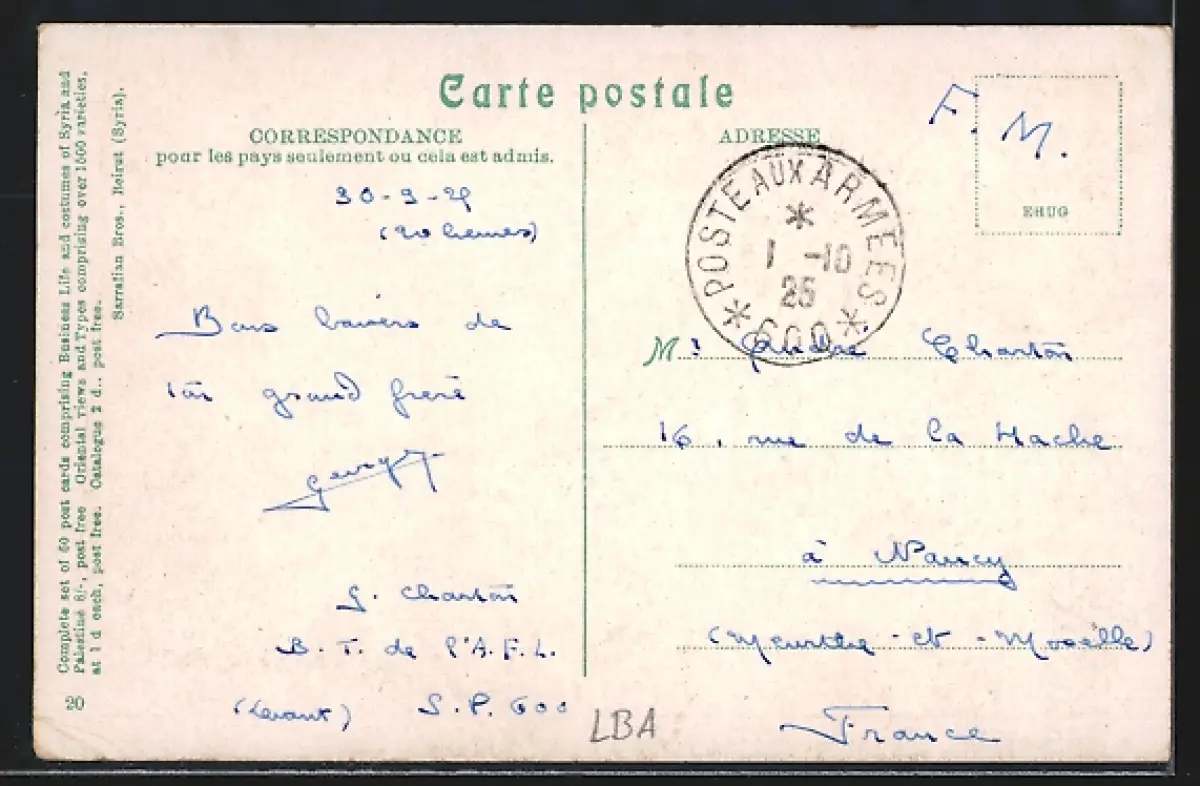 Carte postale
CORRESPONDANCE
pour les pays seulement ou cela est admis.
30-9-25
(20 heures)
Bons baisers de
ton grand frère
Georges
G. Charton
B. T. de l'A. F. L.
(Levant) S. P. 600
LBA
ADRESSE
F. M.
EHUG
POSTE AUX ARMÉES
1 -10
25
600
Mr André Charton
16, rue de la Hache
à Nancy
(Meurthe-et-Moselle)
France
Complete set of 60 post cards comprising Business Life and costumes of Syria and
Palestine 6/-, post free Oriental views and Types comprising over 1500 varieties,
at 1 d each, post free. Catalogue 2 d., post free.
Sarrafian Bros., Beirut (Syria).
20